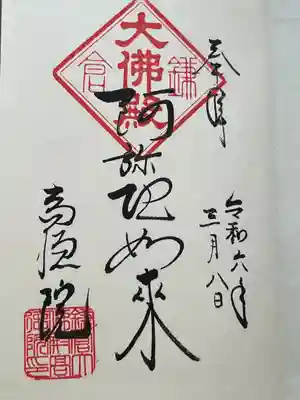 奉拝
令和六年
三月八日
鎌倉
大佛殿
阿弥陀如来
高徳院